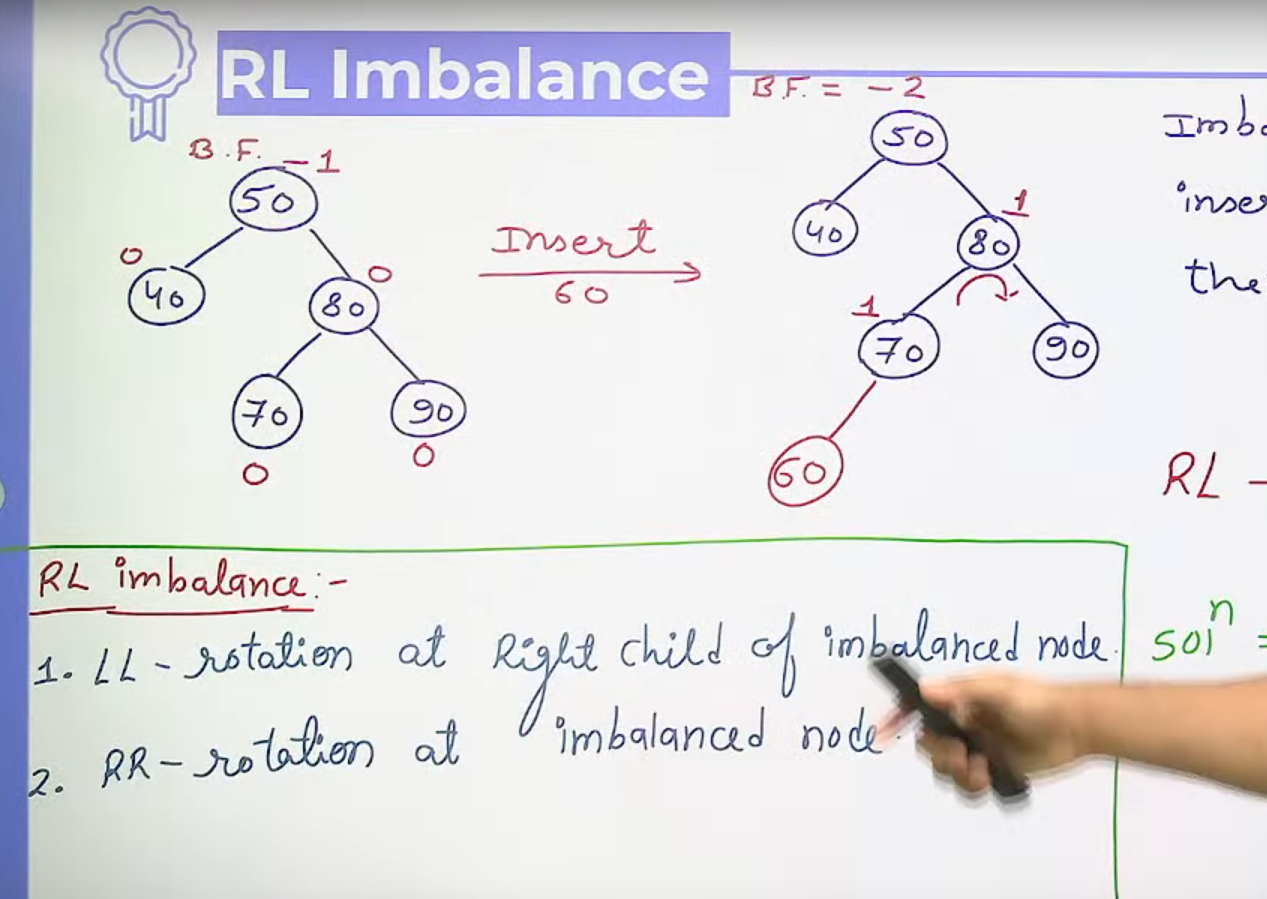 RL Imbalance
B.F. -1
50
0
40
0
80
70
90
0
0
Insert
60
B.F. = -2
50
40
1
80
1
70
90
60
Imba
inser
the
RL -
RL imbalance:-
1. LL - rotation at Right child of imbalanced node.
2. RR - rotation at imbalanced node.
solⁿ =